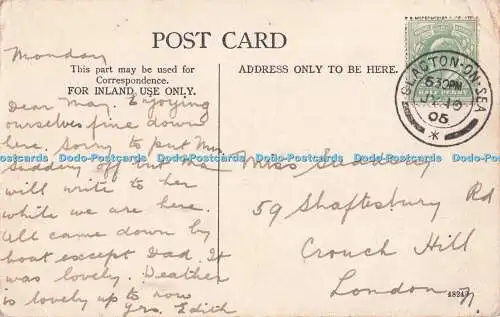 POST CARD
This part may be used for
Correspondence.
FOR INLAND USE ONLY.
ADDRESS ONLY TO BE HERE.
HALF PENNY
CLACTON-ON-SEA
6 30 PM
10
05
Monday
Dear May. Enjoying
ourselves fine down
here. Sorry to put Mrs
off but Ma
will write to her
while we are here.
All came down by
boat except Dad. It
was lovely. Weather
is lovely up to now
Yrs. Edith
Miss
59 Shaftesbury Rd
Crouch Hill
London N.
Dodo-Postcards Dodo-Postcards Dodo-Postcards Dodo-Postcards Dodo-Postcards